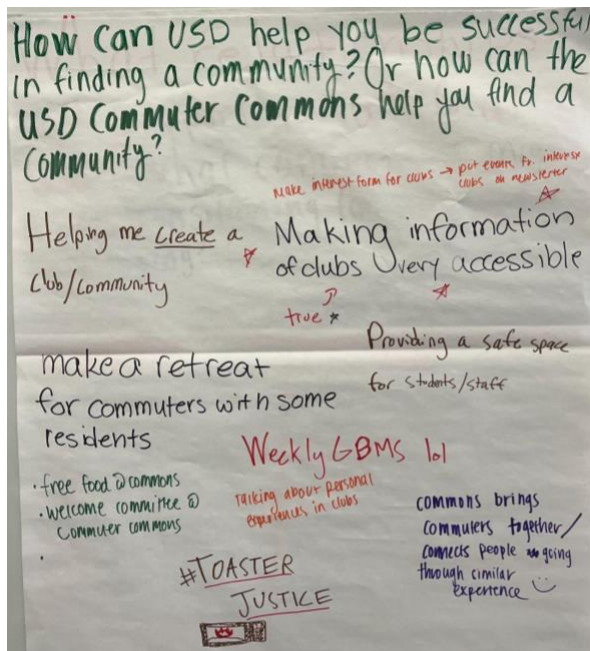 How can USD help you be successful
in finding a community? Or how can the
USD Commuter Commons help you find a
Community?
Make interest form for clubs → put events fr. interest
clubs on newsletter
Helping me create a
club/community
Making information
of clubs very accessible
true
Providing a safe space
for students/staff
make a retreat
for commuters with some
residents
Weekly GBMS lol
Talking about personal
experiences in clubs
· free food @ commons
· welcome committee @
commuter commons
·
commons brings
commuters together/
connects people going
through similar
experience
#TOASTER
JUSTICE